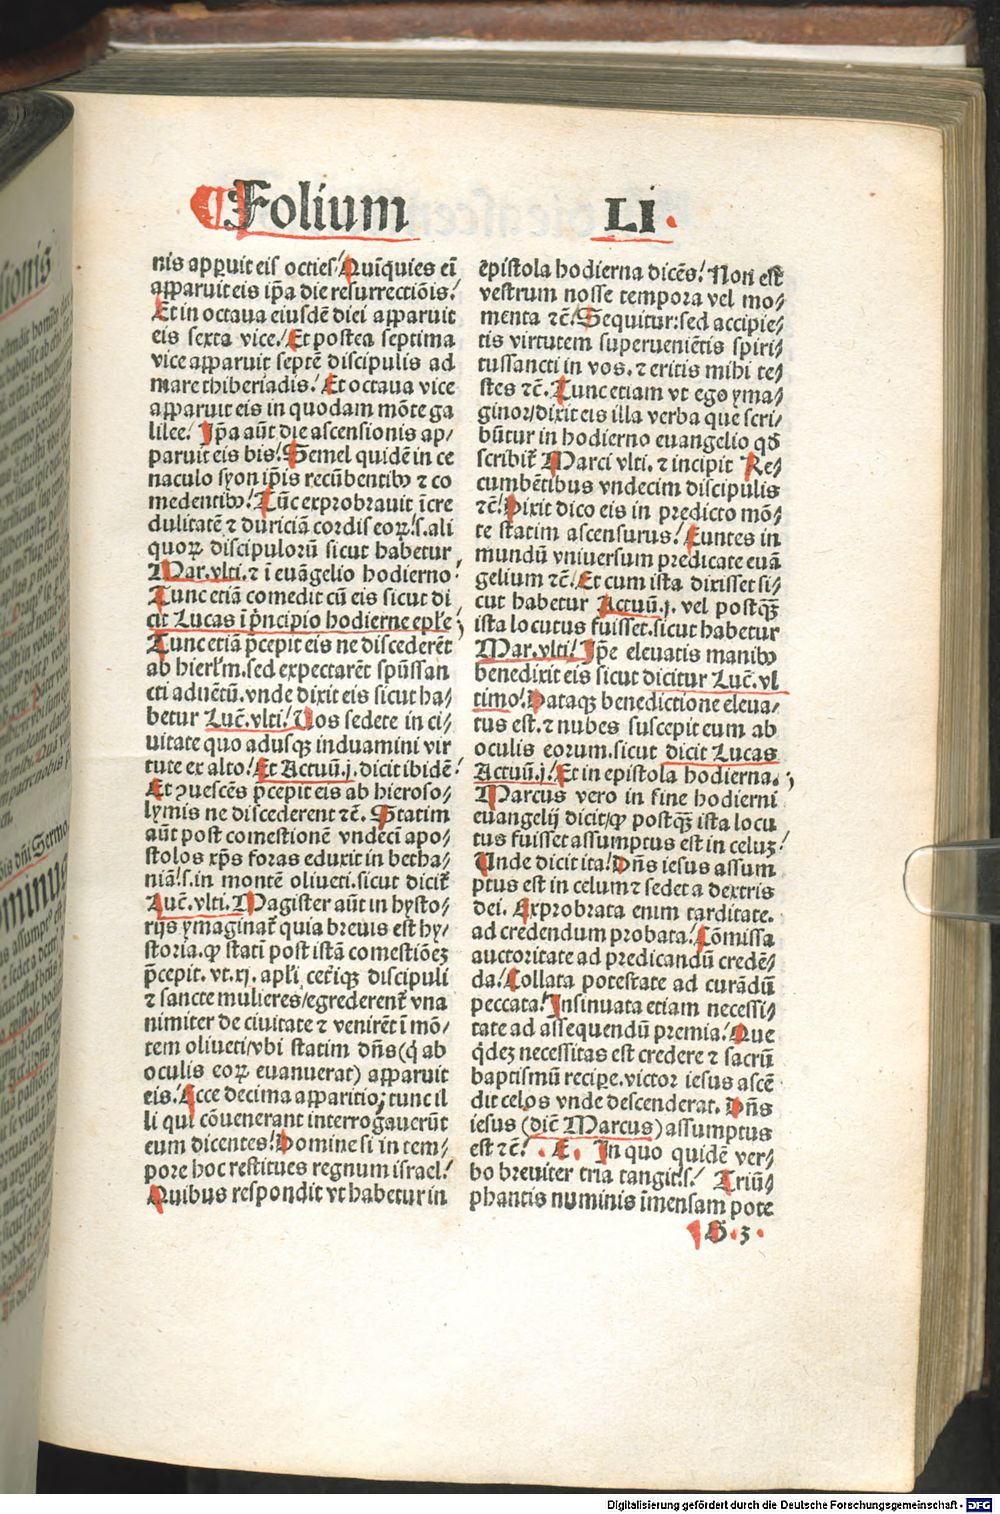 ¶ Folium LI.
nis apparuit eis octies/ Quīquies eī
apparuit eis ip̄a die resurrectiōis/
Et in octaua eiusdē diei apparuit
eis sexta vice/ Et postea septima
vice apparuit septē discipulis ad
mare thiberiadis/ Et octaua vice
apparuit eis in quodam mōte ga
lilee/ Ip̄a aūt die ascensionis ap/
paruit eis bis/ Semel quidē in ce
naculo syon ip̄is recūbentibꝰ ⁊ co
medentibꝰ/ Tūc exprobrauit īcre
dulitatē ⁊ duriciā cordis eoꝝ/.s.ali
quoꝝ discipulorū sicut habetur
Mar.vlti.⁊ ī euāgelio hodierno/
Tunc etiā comedit cū eis sicut di
cit Lucas ī p̄ncipio hodierne ep̄le/
Tunc etiā p̄cepit eis ne discederēt
ab hierl̄m.sed expectarēt sp̄ussan
cti aduētū.vnde dixit eis sicut ha/
betur Luc̄.vlti/ Uos sedete in ci/
uitate quo adusqꝫ induamini vir
tute ex alto/ Et Actuū.j.dicit ibidē/
Et ꝯuescēs p̄cepit eis ab hieroso/
lymis ne discederent ⁊c̄. Statim
aūt post comestionē vndecī apo/
stolos xp̄s foras eduxit in betha/
niā/.s.in montē oliueti.sicut dicit̄
Luc̄.vlti. Magister aūt in hysto/
rijs ymaginat̄ quia breuis est hy/
storia.ꝙ stati post istā comestiōeꝫ
p̄cepit.vt.xj.apl̄i cet̄iqꝫ discipuli
⁊ sancte mulieres/egrederent̄ vna
nimiter de ciuitate ⁊ venirēt ī mō/
tem oliueti/vbi statim dn̄s(q̄ ab
oculis eoꝝ euanuerat) apparuit
eis. Ecce decima apparitio; tunc il
li qui cōuenerant interrogauerūt
eum dicentes/ Domine si in tem/
pore hoc restitues regnum israel/
Quibus respondit vt habetur in
epistola hodierna dicēs/ Non est
vestrum nosse tempora vel mo/
menta ⁊c̄/ Sequitur:sed accipie/
tis virtutem superueniētis spiri/
tussancti in vos.⁊ eritis mihi te/
stes ⁊c̄. Tunc etiam vt ego yma/
ginor/dixit eis illa verba que scri/
būtur in hodierno euangelio qd̄
scribit̄ Marci vlti.⁊ incipit Re/
cumbētibus vndecim discipulis
⁊c̄/ Dixit dico eis in predicto mō/
te statim ascensurus/ Euntes in
mundū vniuersum predicate euā
gelium ⁊c̄/ Et cum ista dixisset si/
cut habetur Actuū.j. vel postqꝫ
ista locutus fuisset.sicut habetur
Mar.vlti/ Ip̄e eleuatis manibꝰ
benedixit eis sicut dicitur Luc̄.vl
timo/ Dataqꝫ benedictione eleua/
tus est.⁊ nubes suscepit eum ab
oculis eorum.sicut dicit Lucas
Actuū.j/ Et in epistola hodierna.
Marcus vero in fine hodierni
euangelij dicit/ꝙ postqꝫ ista locu
tus fuisset assumptus est in celuꝫ/
Unde dicit ita/ Dn̄s iesus assum
ptus est in celum ⁊ sedet a dextris
dei. Exprobrata enim tarditate.
ad credendum probata/ Cōmissa
auctoritate ad predicandū credē/
da/ Collata potestate ad curādū
peccata/ Insinuata etiam necessi/
tate ad assequendū premia/ Que
q̄deꝫ necessitas est credere ⁊ sacrū
baptismū recipe.victor iesus ascē
dit celos vnde descenderat. Dn̄s
iesus (dic̄ Marcus) assumptus
est ⁊c̄/ .E. In quo quidē ver/
bo breuiter tria tangit.s/ Triū/
phantis numinis īmensam pote
¶ H.3.
Digitalisierung gefördert durch die Deutsche Forschungsgemeinschaft - DFG